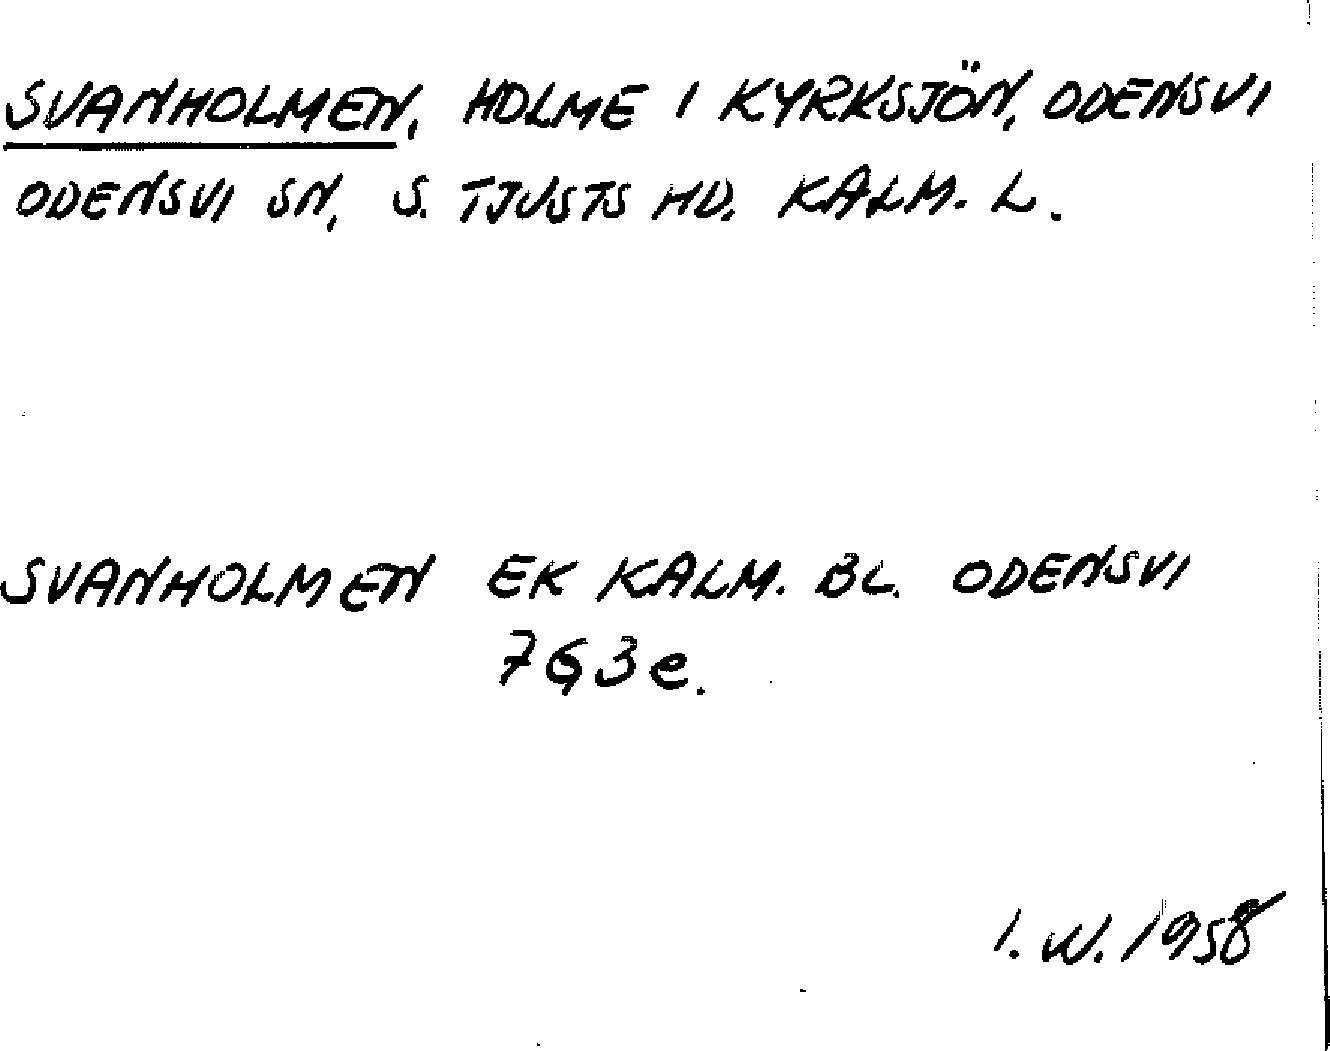 SVANHOLMEN, HOLME I KYRKSJÖN, ODENSVI
ODENSVI SN, S. TJUSTS HD. KALM. L.
SVANHOLMEN EK KALM. BL. ODENSVI
7G3e.
I. W. 1958